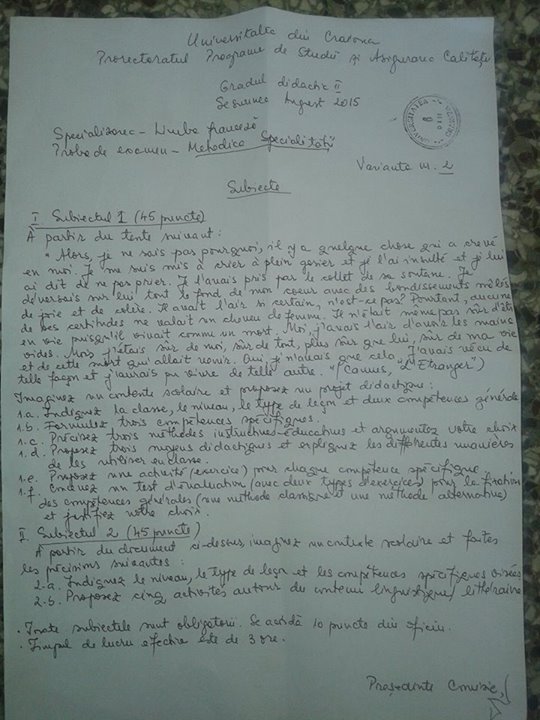 Universitatea din Craiova
Prorectoratul Programe de Studii și Asigurarea Calității
Gradul didactic II
Sesiunea August 2015
Specializarea - Limba franceză
Proba de examen - Metodica Specialității
Varianta nr. 2
Subiecte
I Subiectul 1 (45 puncte)
À partir du texte suivant :
"Alors, je ne sais pas pourquoi, il y a quelque chose qui a crevé
en moi. Je me suis mis à crier à plein gosier et je l'ai insulté et je lui
ai dit de ne pas prier. Je l'avais pris par le collet de sa soutane. Je
déversais sur lui tout le fond de mon coeur avec des bondissements mêlés
de joie et de colère. Il avait l'air si certain, n'est-ce pas? Pourtant, aucune
de ses certitudes ne valait un cheveu de femme. Il n'était même pas sûr d'être
en vie puisqu'il vivait comme un mort. Moi, j'avais l'air d'avoir les mains
vides. Mais j'étais sûr de moi, sûr de tout, plus sûr que lui, sûr de ma vie
et de cette mort qui allait venir. Oui, je n'avais que cela. J'avais vécu de
telle façon et j'aurais pu vivre de telle autre." (Camus, "L'Etranger")
Imaginez un contexte scolaire et proposez un projet didactique :
1.a. Indiquez la classe, le niveau, le type de leçon et deux compétences générales
1.b. Formulez trois compétences spécifiques.
1.c. Précisez trois méthodes instructives-éducatives et argumentez votre choix
1.d. Proposez trois moyens didactiques et expliquez les différentes manières
de les utiliser en classe.
1.e. Proposez une activité (exercice) pour chaque compétence spécifique
1.f. Concevez un test d'évaluation (avec deux types d'exercices) pour la fixation
des compétences générales (une méthode classique et une méthode alternative)
et justifiez votre choix.
II. Subiectul 2 (45 puncte)
À partir du document ci-dessus, imaginez un contexte scolaire et faites
les précisions suivantes :
2.a. Indiquez le niveau, le type de leçon et les compétences spécifiques visées
2.b. Proposez cinq activités autour du contenu linguistique / littéraire
. Toate subiectele sunt obligatorii. Se acordă 10 puncte din oficiu.
. Timpul de lucru efectiv este de 3 ore.
Președinte Comisie,